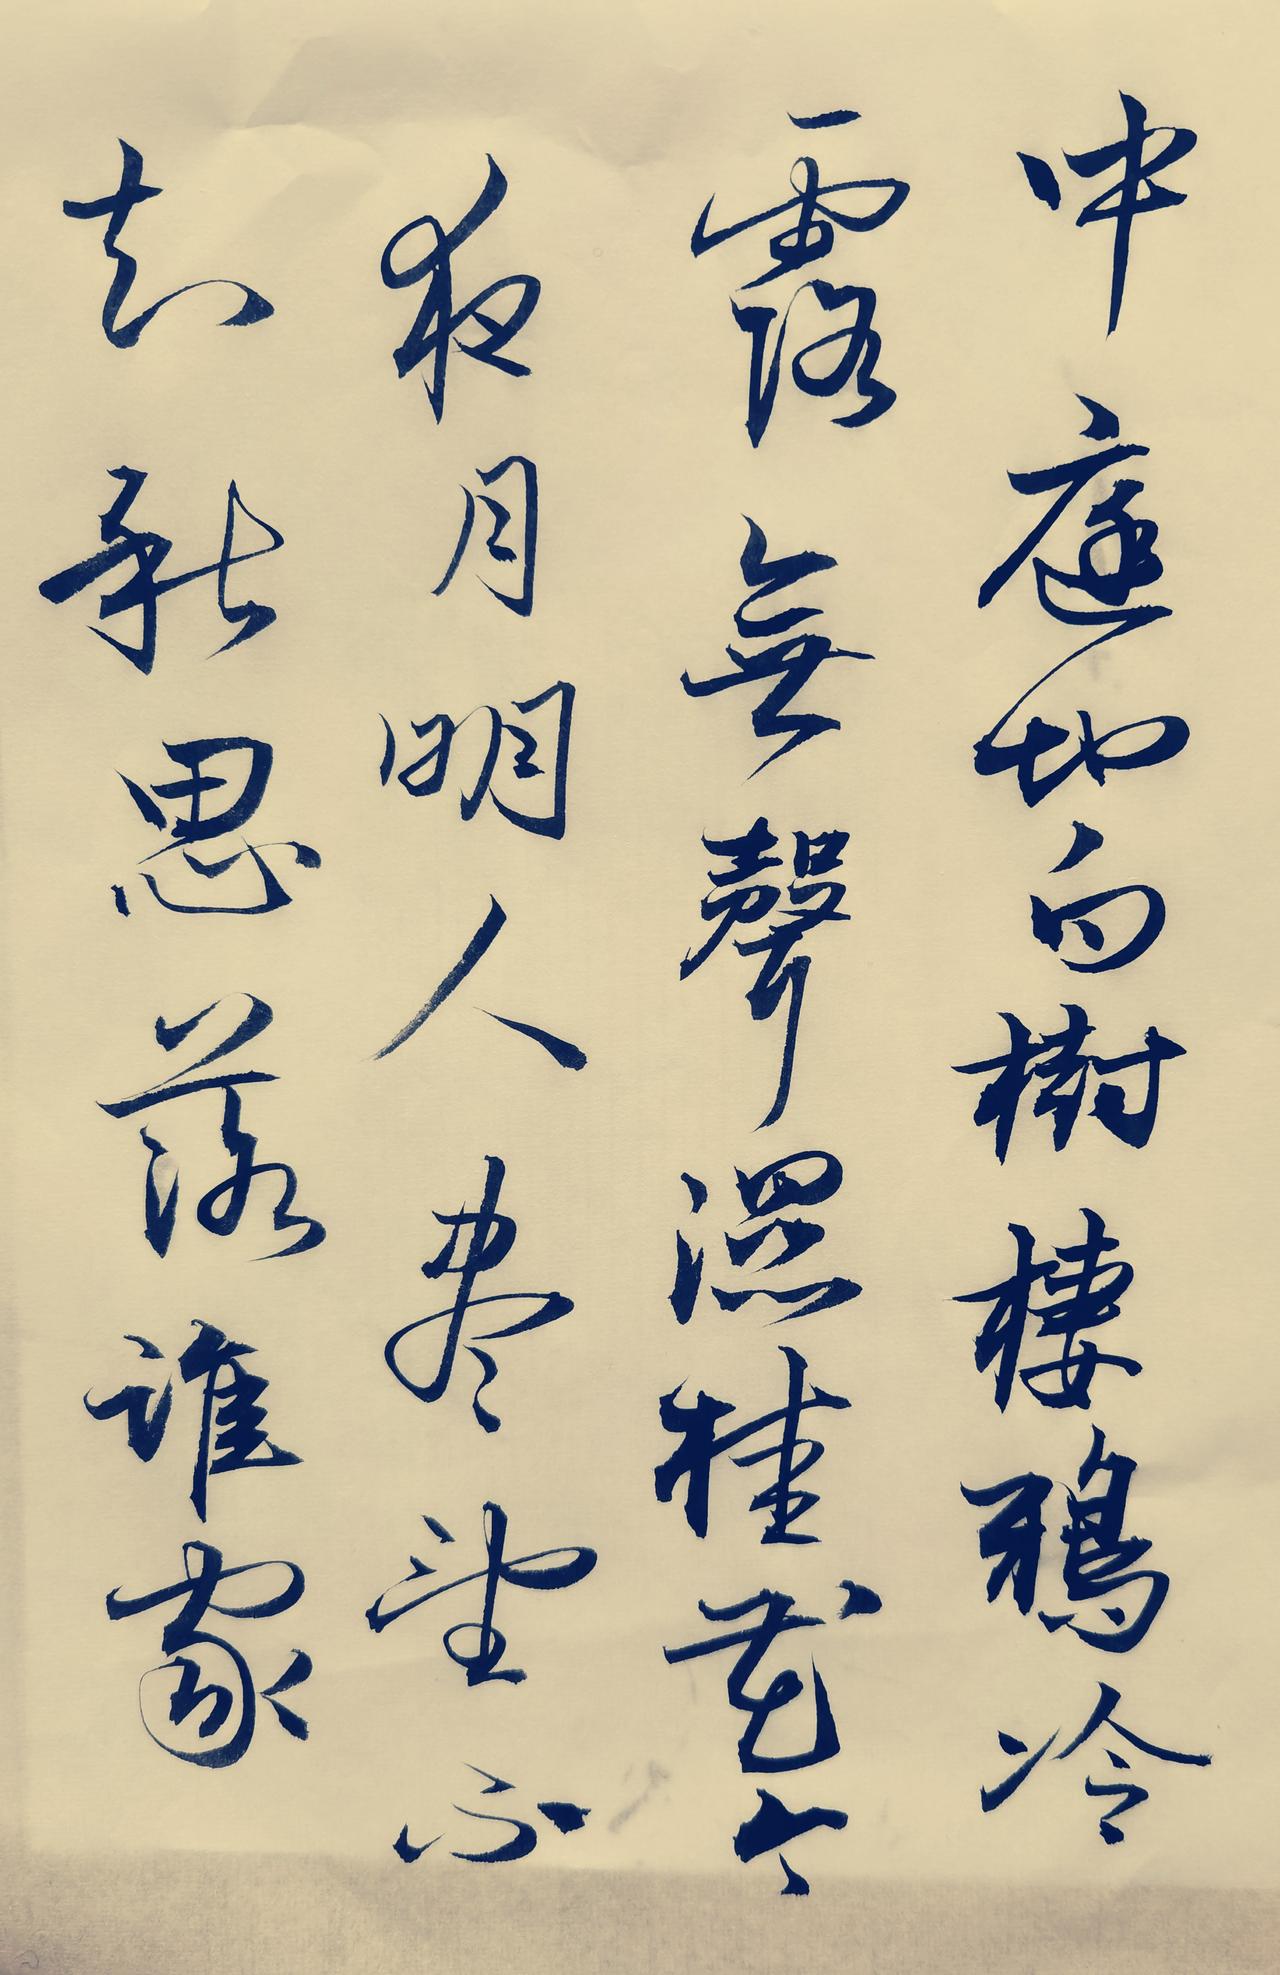 中庭地白樹棲鴉冷
露無聲濕桂花今
夜月明人盡望不
知秋思落誰家